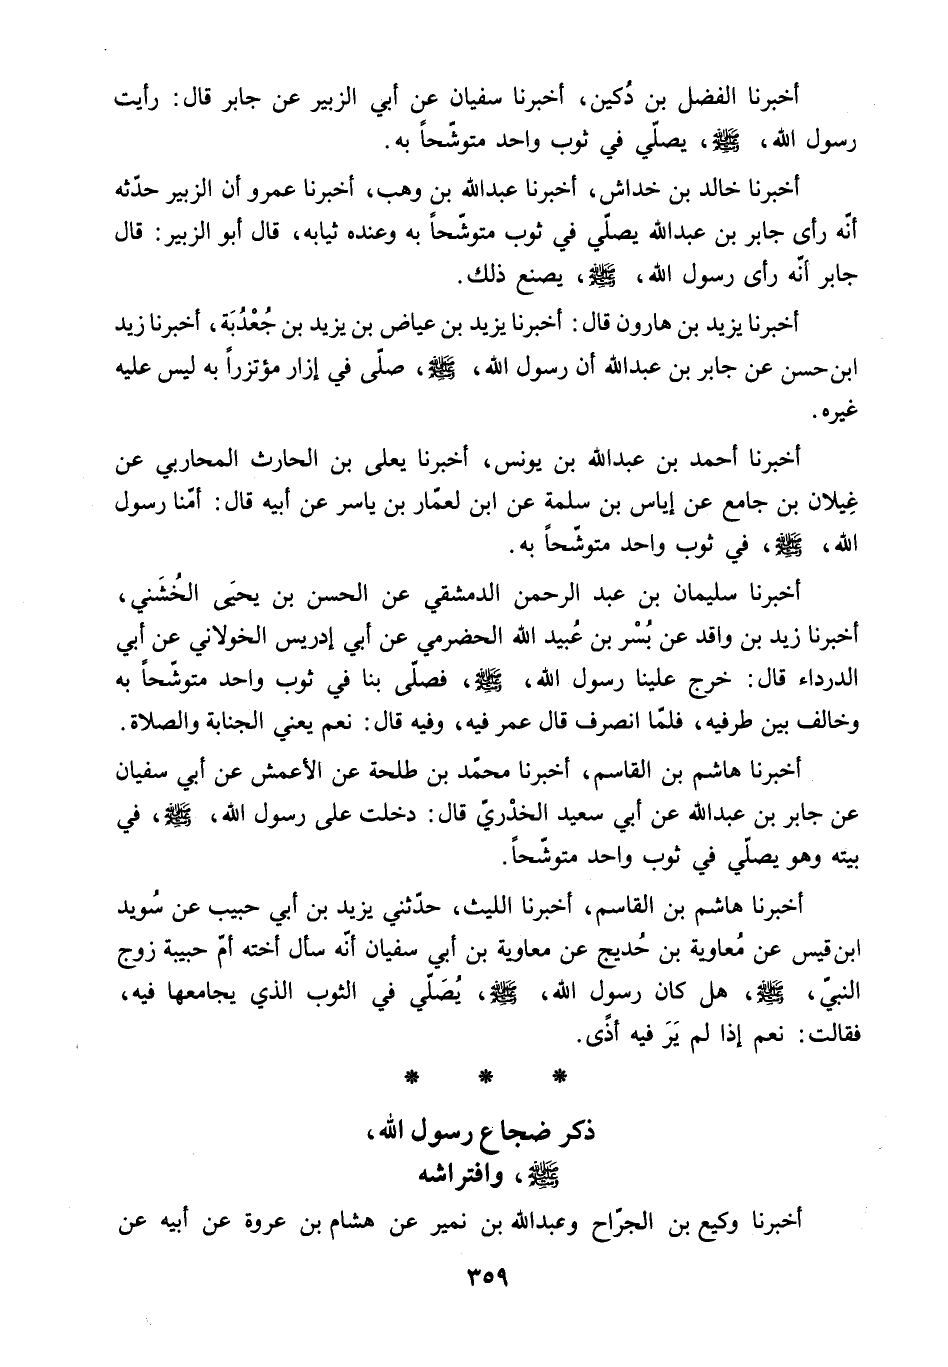 أخبرنا الفضل بن دُكين، أخبرنا سفيان عن أبي الزبير عن جابر قال: رأيت
رسول الله، ﷺ، يصلّي في ثوب واحد متوشّحاً به.
أخبرنا خالد بن خداش، أخبرنا عبدالله بن وهب، أخبرنا عمرو أن الزبير حدّثه
أنّه رأى جابر بن عبدالله يصلّي في ثوب متوشّحاً به وعنده ثيابه، قال أبو الزبير: قال
جابر أنّه رأى رسول الله، ﷺ، يصنع ذلك.
أخبرنا يزيد بن هارون قال: أخبرنا يزيد بن عياض بن يزيد بن جُعْدُبَة، أخبرنا زيد
ابن حسن عن جابر بن عبدالله أن رسول الله، ﷺ، صلّى في إزار مؤتزراً به ليس عليه
غيره.
أخبرنا أحمد بن عبدالله بن يونس، أخبرنا يعلى بن الحارث المحاربي عن
غِيلان بن جامع عن إياس بن سلمة عن ابن لعمّار بن ياسر عن أبيه قال: أمّنا رسول
الله، ﷺ، في ثوب واحد متوشّحاً به.
أخبرنا سليمان بن عبد الرحمن الدمشقي عن الحسن بن يحيَى الخُشَني،
أخبرنا زيد بن واقد عن بُسْر بن عُبيد الله الحضرمي عن أبي إدريس الخولاني عن أبي
الدرداء قال: خرج علينا رسول الله، ﷺ، فصلّى بنا في ثوب واحد متوشّحاً به
وخالف بين طرفيه، فلمّا انصرف قال عمر فيه، وفيه قال: نعم يعني الجنابة والصلاة.
أخبرنا هاشم بن القاسم، أخبرنا محمّد بن طلحة عن الأعمش عن أبي سفيان
عن جابر بن عبدالله عن أبي سعيد الخذريّ قال: دخلت على رسول الله، ﷺ، في
بيته وهو يصلّي في ثوب واحد متوشّحاً.
أخبرنا هاشم بن القاسم، أخبرنا الليث، حدّثني يزيد بن أبي حبيب عن سُويد
ابن قيس عن مُعاوية بن حُديج عن معاوية بن أبي سفيان أنّه سأل أخته أمّ حبيبة زوج
النبيّ، ﷺ، هل كان رسول الله، ﷺ، يُصَلّي في الثوب الذي يجامعها فيه،
فقالت: نعم إذا لم يَرَ فيه أذًى.
* * *
ذكر ضجاع رسول الله،
ﷺ، وافتراشه
أخبرنا وكيع بن الجرّاح وعبدالله بن نمير عن هشام بن عروة عن أبيه عن
٣٥٩